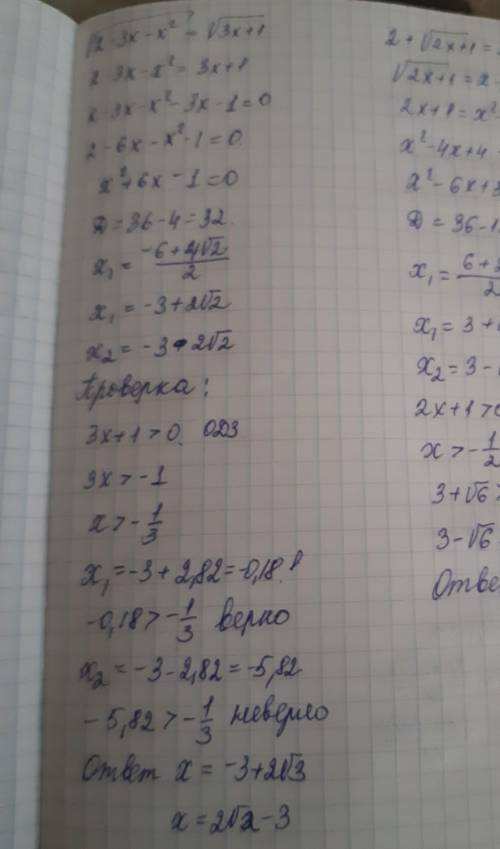 √2-3x-x² = √3x+1
2-3x-x² = 3x+1
2-3x-x²-3x-1=0
2-6x-x²-1=0
x²+6x-1=0
D=36-4=32
x₁ = -6+4√2/2
x₁ = -3+2√2
x₂ = -3-2√2
Проверка:
3x+1>0. ОДЗ
3x>-1
x>-1/3
x₁=-3+2,82=-0,18
-0,18>-1/3 верно
x₂=-3-2,82=-5,82
-5,82>-1/3 неверно
Ответ x = -3+2√3
x=2√2-3
2+√2x+1=
√2x+1=x-
2x+1=x²
x²-4x+4-
x²-6x+3
D=36-1
x₁=6+2
x₁=3+
x₂=3-
2x+1>0
x>-1/2
3+√6>
3-√6
Ответ